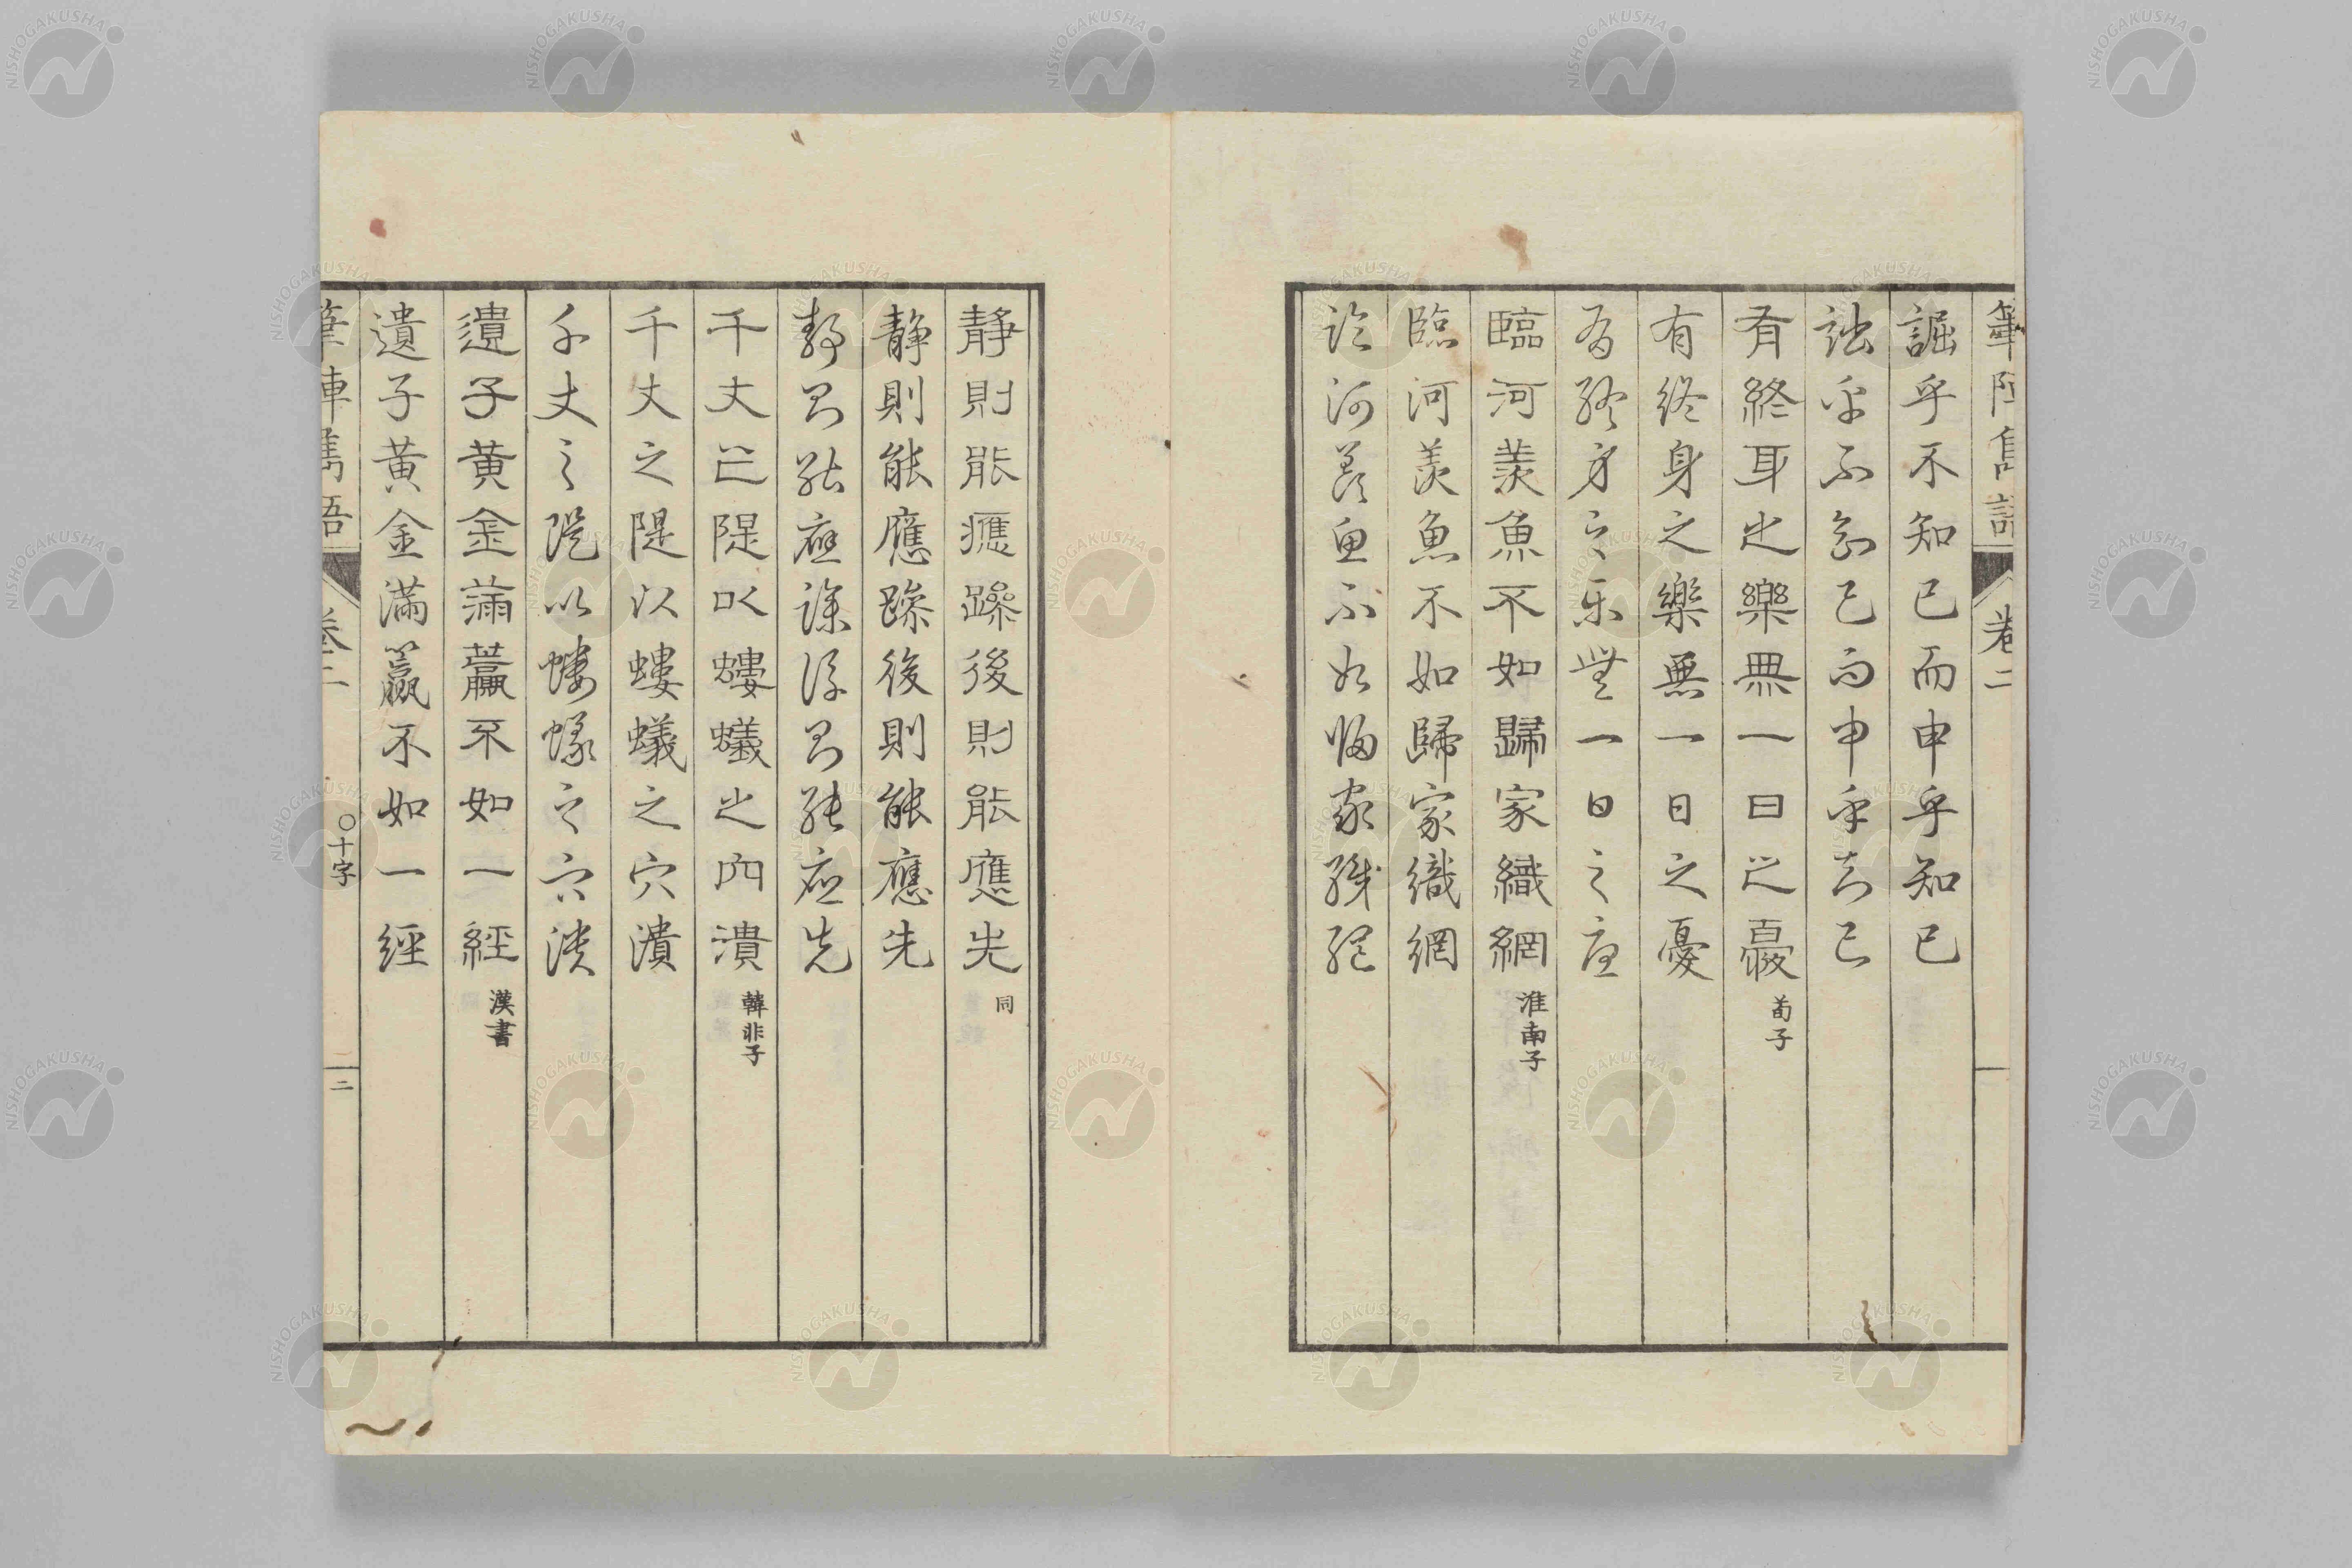 筆陣雋語 卷二
詘乎不知己而申乎知己
詘乎不知己而申乎知己
有終身之樂無一日之憂 荀子
有終身之樂無一日之憂
有終身之樂無一日之憂
臨河羨魚不如歸家織網 淮南子
臨河羨魚不如歸家織網
臨河羨魚不如歸家織網
靜則能應躁後則能應先 同
靜則能應躁後則能應先
靜則能應躁後則能應先
千丈之隄以螻蟻之穴潰 韓非子
千丈之隄以螻蟻之穴潰
千丈之隄以螻蟻之穴潰
遺子黃金滿籯不如一經 漢書
遺子黃金滿籯不如一經
筆陣雋語 卷二 〇十字 二
NISHOGAKUSHA